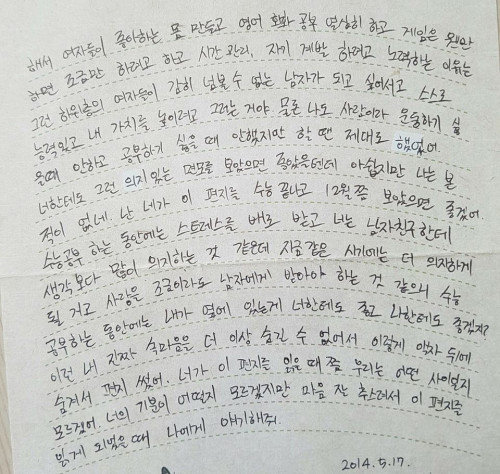 해서 여자들이 좋아하는 몸 만들고 영어 회화 공부 열심히 하고 게임은 웬만
하면 조금만 하려고 하고 시간 관리, 자기 계발 하려고 노력하는 이유는
그런 하위층의 여자들이 감히 넘볼 수 없는 남자가 되고 싶어서고 스스로
능력있고 내 가치를 높이려고 그러는거야 물론 나도 사람이라 운동하기 싫
을때 안하고 공부하기 싫을 때 안했지만 할 땐 제대로 했었어
너한테도 그런 의지있는 면모를 보았으면 좋았을텐데 아쉽지만 나는 본
적이 없네 난 네가 이 편지를 수능 끝나고 12월쯤 보았으면 좋겠어
수능공부 하는 동안에는 스트레스를 배로 받고 너는 남자친구한테
생각보다 많이 의지하는 것 같은데 지금같은 시기에는 더 의지하게
될 거고 사랑을 조금이라도 남자에게 받아야 하는 것 같으니 수능
공부하는 동안에는 내가 옆에 있는게 너한테도 좋고 나한테도 좋겠지?
이런 내 진짜 속마음을 더 이상 숨길 수 없어서 이렇게 액자 뒤에
숨겨서 편지 썼어. 너가 이 편지를 읽을 때쯤 우리는 어떤 사이일지
모르겠어. 너의 기분이 어떨지 모르겠지만 마음 잘 추스려서 이 편지를
읽게 되었을때 나에게 얘기해줘.
2014.5.17.